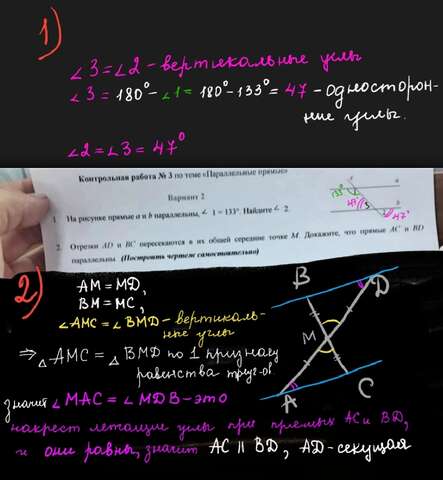 1)
∠3 = ∠2 - вертикальные углы
∠3 = 180° - ∠1 = 180° - 133° = 47 - односторон-
ние углы.
∠2 = ∠3 = 47°
Контрольная работа № 3 по теме «Параллельные прямые»
Вариант 2
1. На рисунке прямые a и b параллельны, ∠ 1 = 133°. Найдите ∠ 2.
133°
47°
3
47°
2. Отрезки AD и BC пересекаются в их общей середине точке M. Докажите, что прямые AC и BD
параллельны. (Построить чертеж самостоятельно)
2)
AM = MD,
BM = MC,
∠AMC = ∠BMD - вертикаль-
ные углы
⇒ △AMC = △BMD по 1 признаку
равенства треуг-ов
значит ∠MAC = ∠MDB - это
накрест лежащие углы при прямых AC и BD,
и они равны, значит AC || BD, AD - секущая
B
D
M
A
C